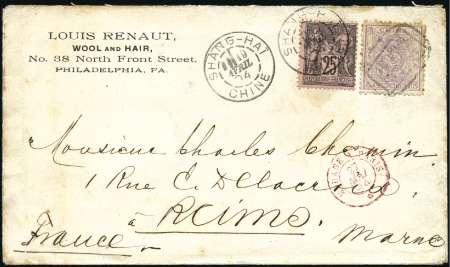 LOUIS RENAUT,
WOOL AND HAIR,
No. 38 North Front Street,
PHILADELPHIA, PA.
SHANG-HAI
AVRIL
04
CHINE
SHANG-HAI
25
Monsieur Charles Chemin
1 Rue E. Delacroix
à Reims,
France Marne